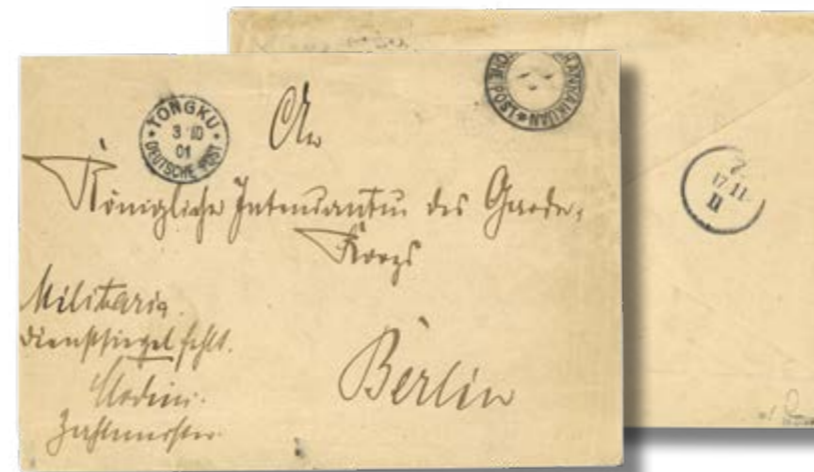 TONGKU
3 10
01
DEUTSCHE POST
SHANHAIKUAN
DEUTSCHE POST
An
Königliche Intendantur des Garde-
Korps
Berlin
Militaria.
Dienstsiegel fehlt.
Zahlmeister
7.
17.11.
II